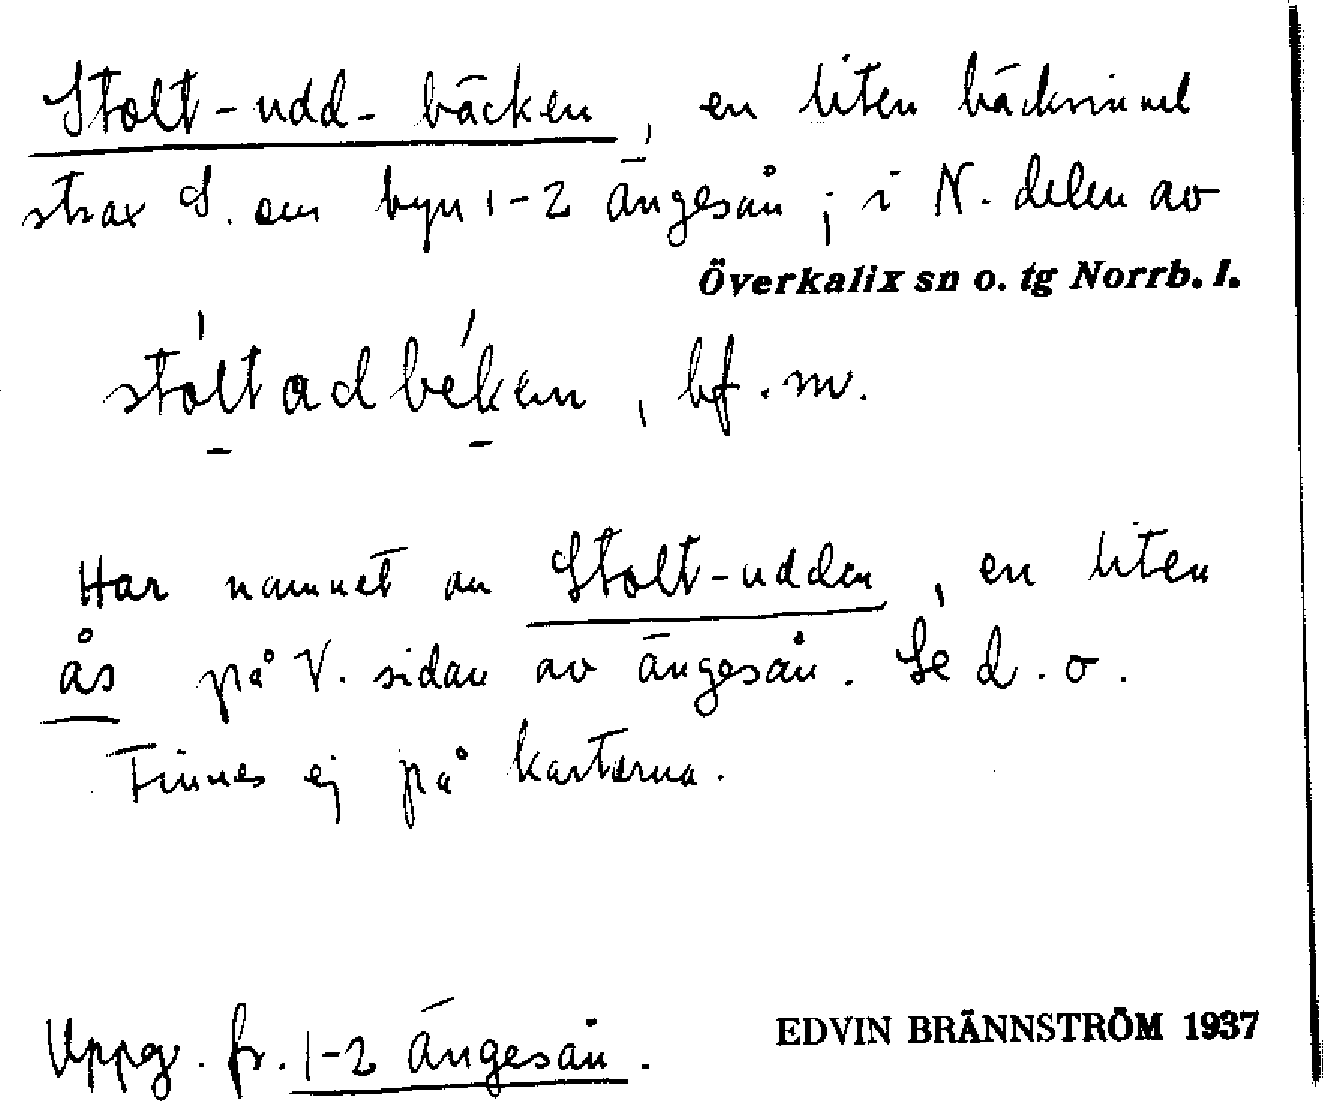 Stolt-udd-bäcken, en liten bäckrinnel
strax S. om byn 1-2 Ängesån; i N. delen av
Överkalix sn o. tg Norrb. l.
stòltadbèkan, bf. m.
Har namnet av Stolt-udden, en liten
ås på V. sidan av Ängesån. Se d. o.
Finnes ej på kartorna.
Uppg. fr. 1-2 Ängesån.
EDVIN BRÄNNSTRÖM 1937